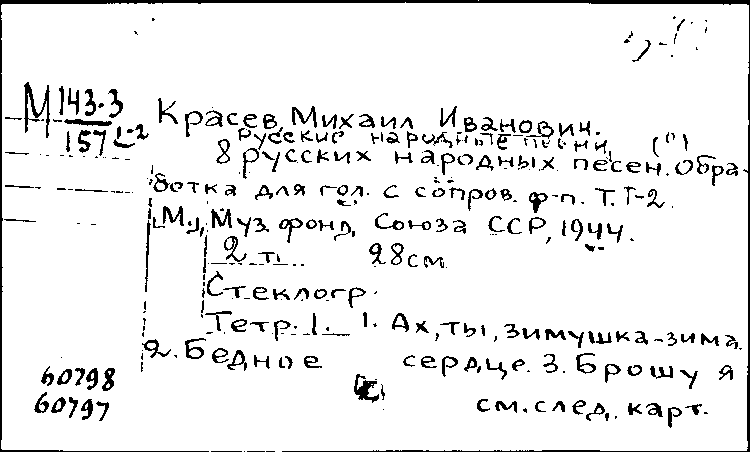 М 143-3
157 1-2
Красев, Михаил Иванович.
Русские народные песни
8 русских народных песен. Обра-
ботка для гол. с сопров. ф-п. Т. 1-2.
[М.], Муз. фонд Союза ССР, 1944.
2 т. 28 см
Стеклогр.
Тетр. 1. 1. Ах, ты, зимушка-зима.
2. Бедное сердце. 3. Брошу я
60798
60797
см. след. карт.